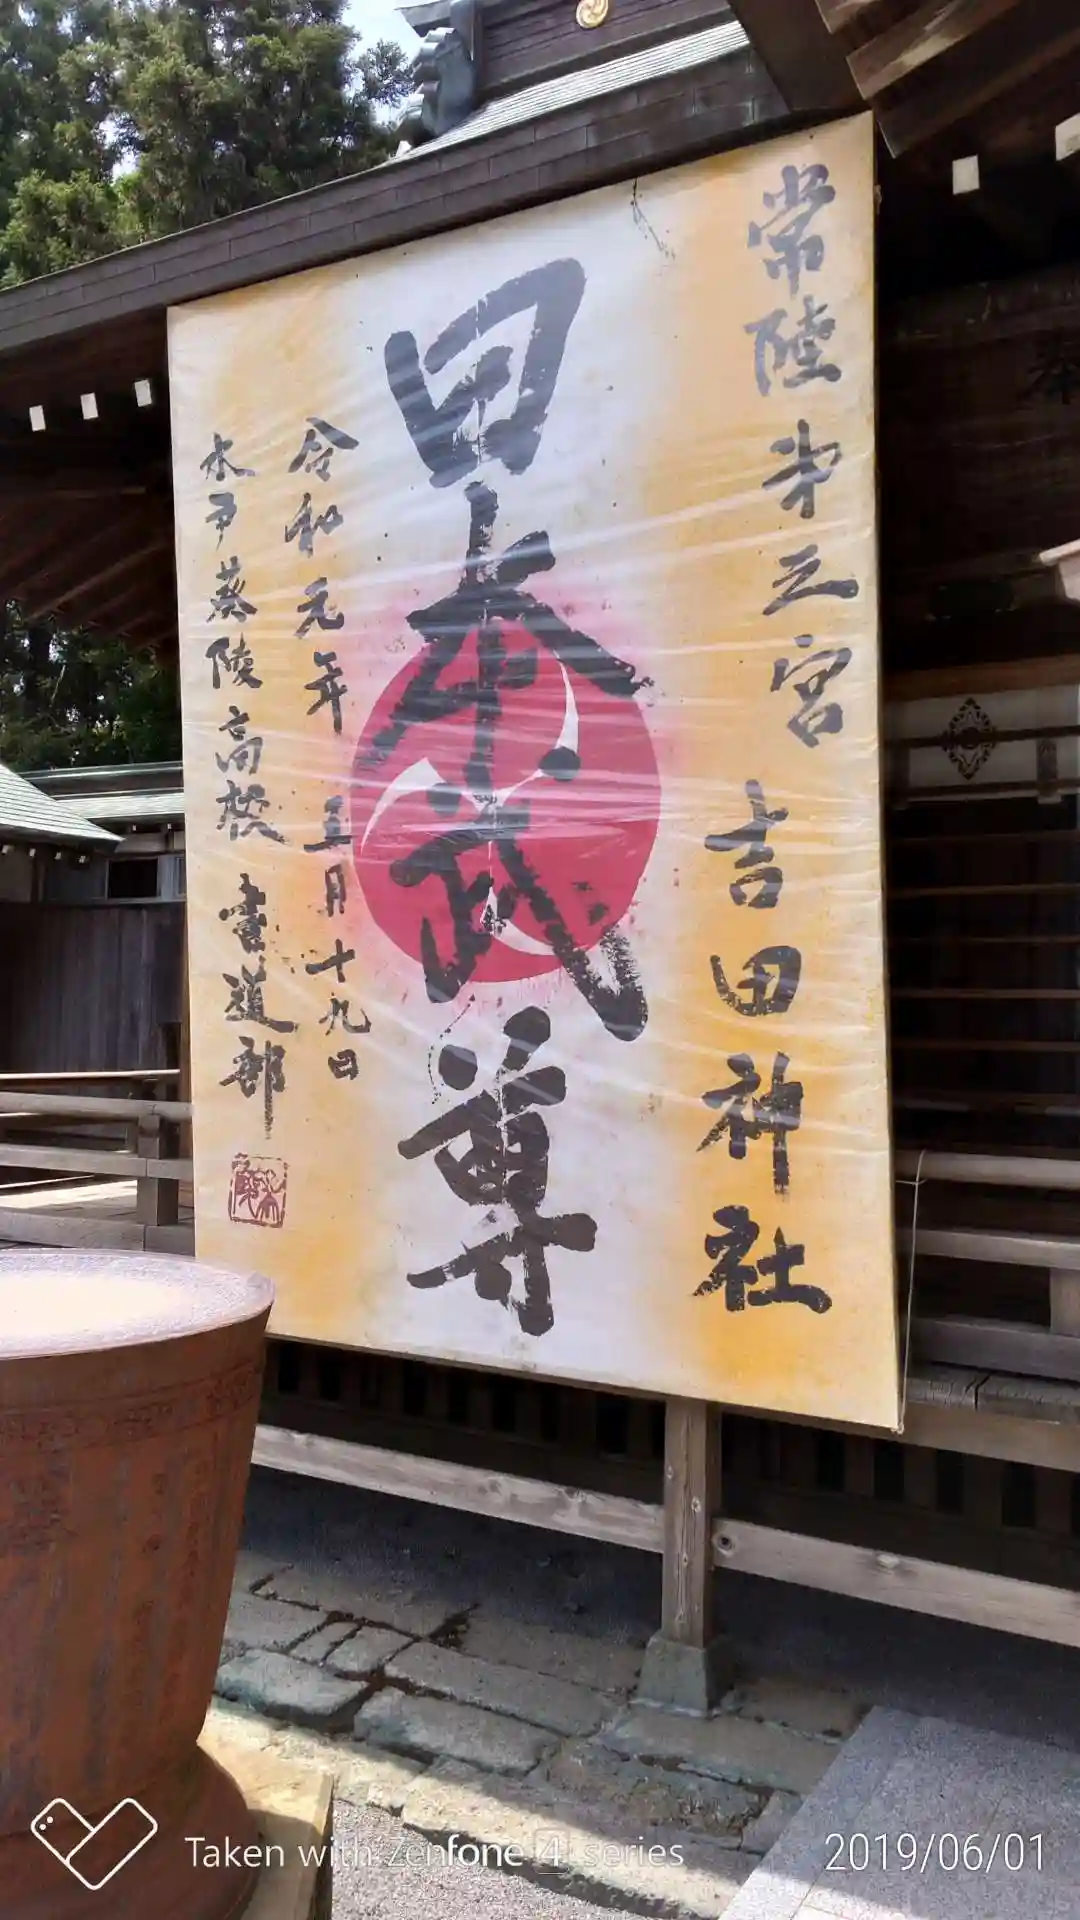 常陸第三宮 吉田神社
日本武尊
令和元年 五月十九日
水戸葵陵高校 書道部
Taken with Zenfone 4 series
2019/06/01